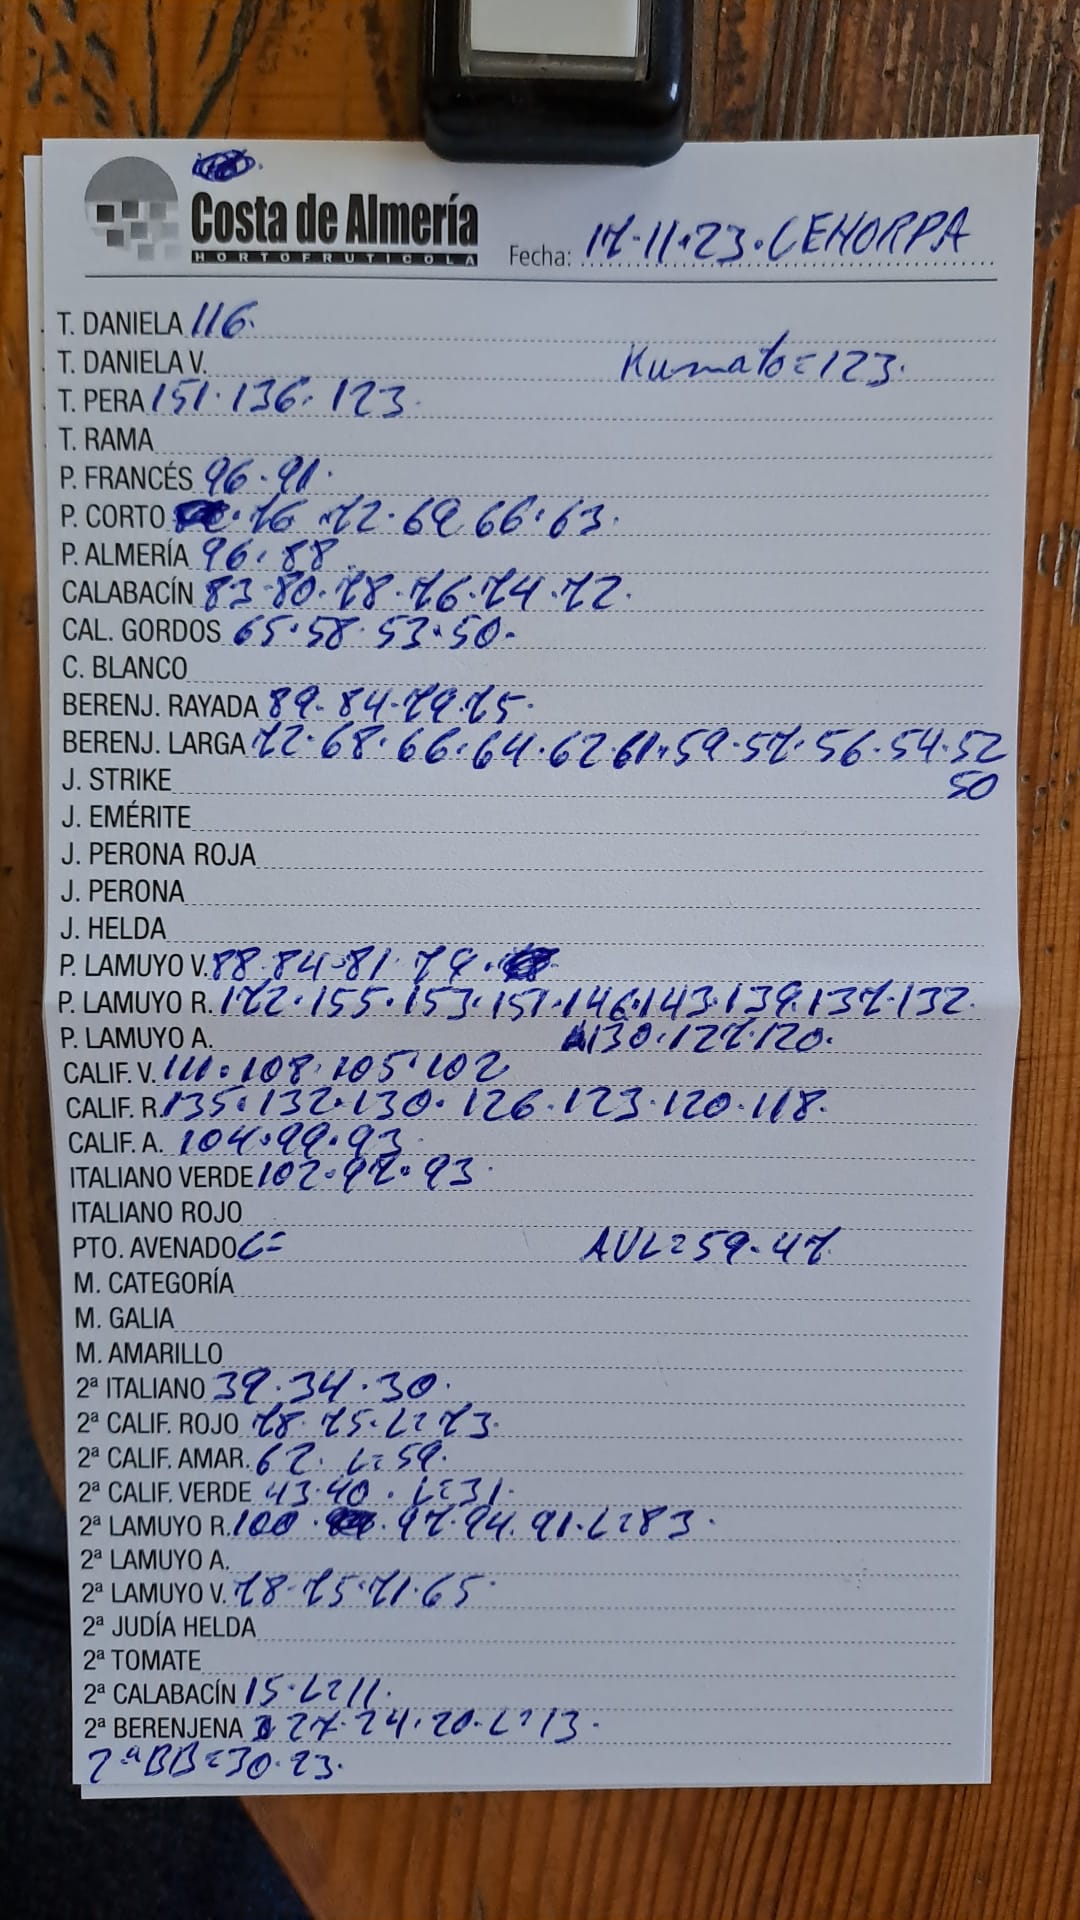 Costa de Almería
HORTOFRUTICOLA
Fecha: 17-11-23. CEHORPA
T. DANIELA 116.
T. DANIELA V. Kumato=123.
T. PERA 151. 136. 123.
T. RAMA
P. FRANCÉS 96. 91.
P. CORTO 76 72. 69 66. 63.
P. ALMERÍA 96. 88
CALABACÍN 83-80. 78. 76. 74. 72.
CAL. GORDOS 65. 58. 53. 50.
C. BLANCO
BERENJ. RAYADA 89. 84. 79. 75.
BERENJ. LARGA 72. 68. 66. 64. 62. 61. 59. 57. 56. 54. 52
J. STRIKE 50
J. EMÉRITE
J. PERONA ROJA
J. PERONA
J. HELDA
P. LAMUYO V. 88. 84. 81. 79.
P. LAMUYO R. 172. 155. 153. 151. 146. 143. 139. 137. 132.
P. LAMUYO A. 130. 127. 120.
CALIF. V. 111. 108. 105. 102
CALIF. R. 135. 132. 130. 126. 123. 120. 118.
CALIF. A. 104. 99. 93
ITALIANO VERDE 102. 97. 93.
ITALIANO ROJO
PTO. AVENADO C= AVL=59. 47.
M. CATEGORÍA
M. GALIA
M. AMARILLO
2ª ITALIANO 39. 34. 30.
2ª CALIF. ROJO 78. 75. L=73.
2ª CALIF. AMAR. 62. L=59.
2ª CALIF. VERDE 43. 40. L=31.
2ª LAMUYO R. 100. 97. 94. 91. L=83.
2ª LAMUYO A.
2ª LAMUYO V. 78. 75. 71. 65
2ª JUDÍA HELDA
2ª TOMATE
2ª CALABACÍN 15. L=11.
2ª BERENJENA 27. 24. 20. L=13.
2ªBB=30. 23.